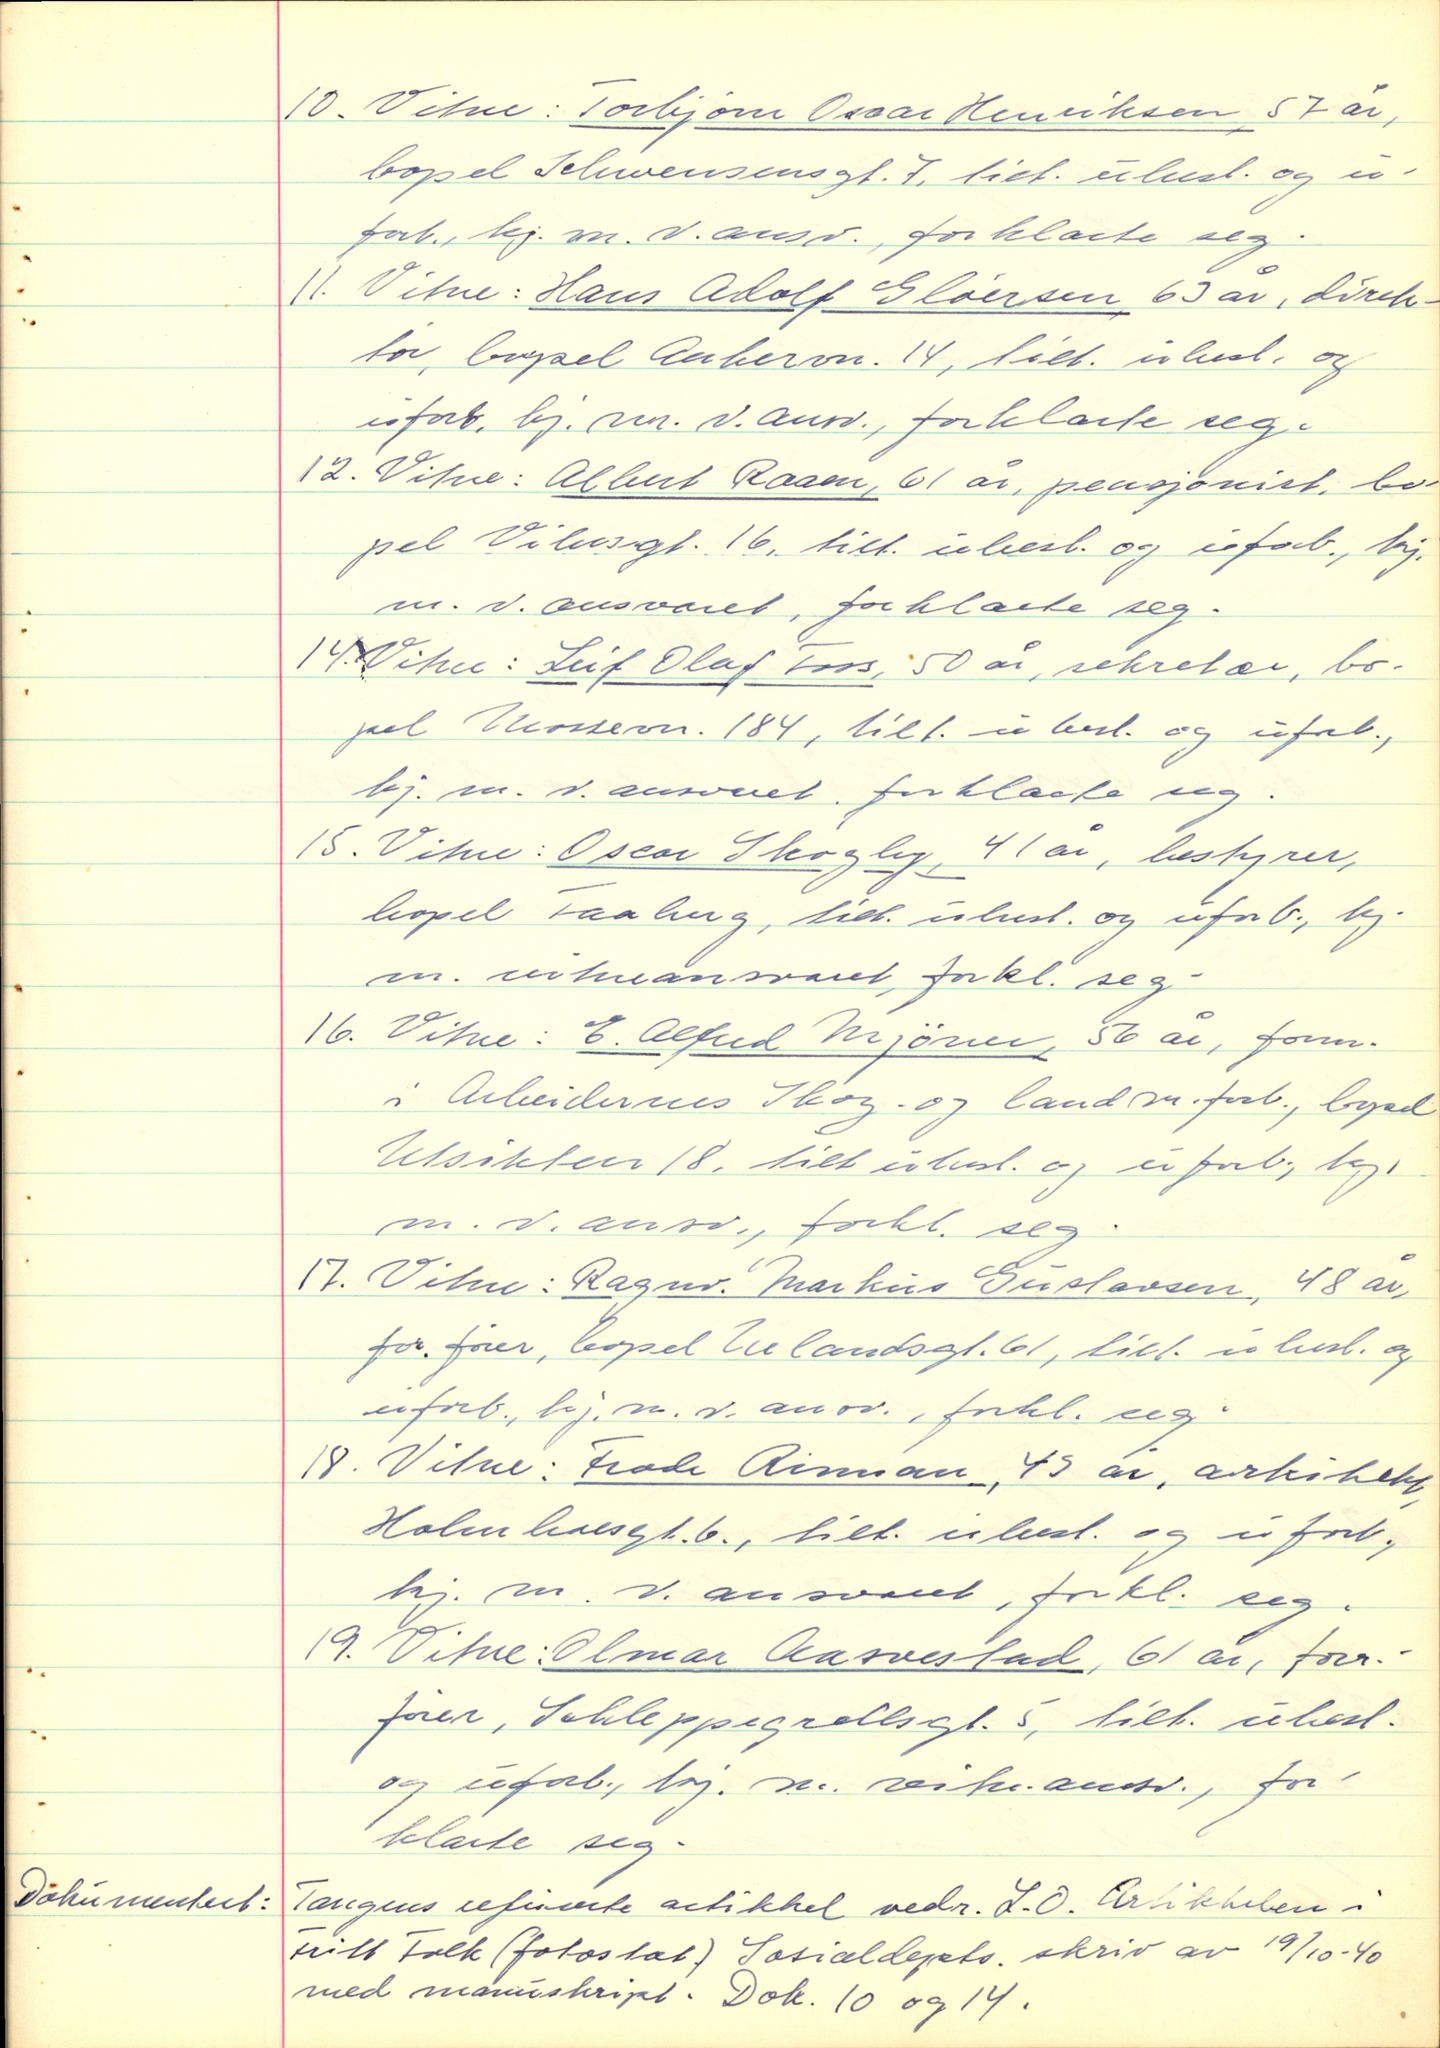 10. Vitne: Torbjörn Oscar Henriksen, 57 år,
bopel Schwensensgt. 7, tilt. ubest. og u-
forb., kj. m. v. ansv., forklarte seg.
11. Vitne: Hans Adolf Gløersen, 63 år, direk-
tør, bopel Ankervn. 14, tilt. ubest. og
uforb. kj. m. v. ansv., forklarte seg.
12. Vitne: Albert Raaen, 61 år, pensjonist, bo-
pel Vibesgt. 16, tilt. ubest. og uforb., kj.
m. v. ansvaret, forklarte seg.
14. Vitne: Leif Olaf Foss, 50 år, sekretær, bo-
pel Mossevn. 184, tilt. ubest. og uforb.,
kj. m. v. ansvaret, forklarte seg.
15. Vitne: Oscar Skogly, 41 år, bestyrer,
bopel Faaberg, tilt. ubest. og uforb., kj.
m. vitneansvaret, forkl. seg.
16. Vitne: E. Alfred Mjöner, 56 år, form.
i Arbeidernes Skog- og landm. forb., bopel
Utsikten 18, tilt ubest. og uforb., kj.
m. v. ansv., forkl. seg.
17. Vitne: Ragnv. Markus Gustavsen, 48 år,
for. fører, bopel Uelandsgt. 61, tilt. ubest. og
uforb., kj. m. v. ansv., forkl. seg.
18. Vitne: Frode Rinnan, 43 år, arkitekt,
Holmboesgt. 6., tilt. ubest. og uforb.,
kj. m. v. ansvaret, forkl. seg.
19. Vitne: Olmar Aasvestad, 61 år, forr.-
fører, Schleppegrellsgt. 5, tilt. ubest.
og uforb., kj. m. vitn. ansv., for-
klarte seg.
Dokumentert: Tangens refuserte artikkel vedr. L.O. Artikkelen i
Fritt Folk (fotostat) Sosialdepts. skriv av 19/10-40
med manuskript. Dok. 10 og 14.